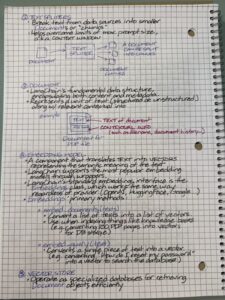 ① TEXT SPLITTERS
• Break text from data sources into smaller
Documents or "chunks"
• Helps overcome limits of max prompt size,
a.k.a. context window
TEXT
SPLITTER
A DOCUMENT
CAN BE SPLIT
INTO MULTIPLE
DOCUMENT
CHUNKS
② DOCUMENT
• LangChain's fundamental data structure,
encapsulating both content and metadata.
• Represents a unit of text (structured or unstructured)
along w/ relevant contextual info
example
TEXT
META
TEXT of document
CONTEXTUAL INFO
(such as filename, document history...)
Document
PDF file
③ EMBEDDING MODEL
• A component that translates TEXT into VECTORS
representing the semantic meaning of the text
• LangChain supports the most popular embedding
models through wrappers
• LangChain's standard embedding interface is the
Embeddings class, which works the same way
regardless of provider (OpenAI, Hugging Face, Google...)
• Embeddings' primary methods:
embed_documents(texts)
• Converts a list of texts into a list of vectors
• Use when indexing large datasets
(e.g. converting 100 PDF pages into vectors
for DB storage)
embed_query(text)
• Converts a single piece of text into a vector
(e.g. converting "How do I reset my password"
into a vector to search the database)
④ VECTOR STORE
• Operate as specialized databases for retrieving
Document objects efficiently